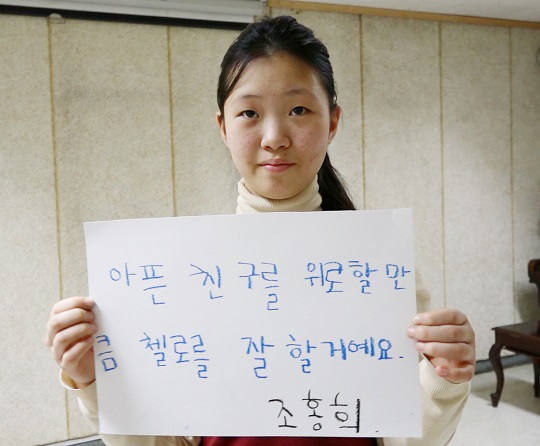 아픈 친구를 위로할 만
큼 첼로를 잘 할거예요.
조홍희.